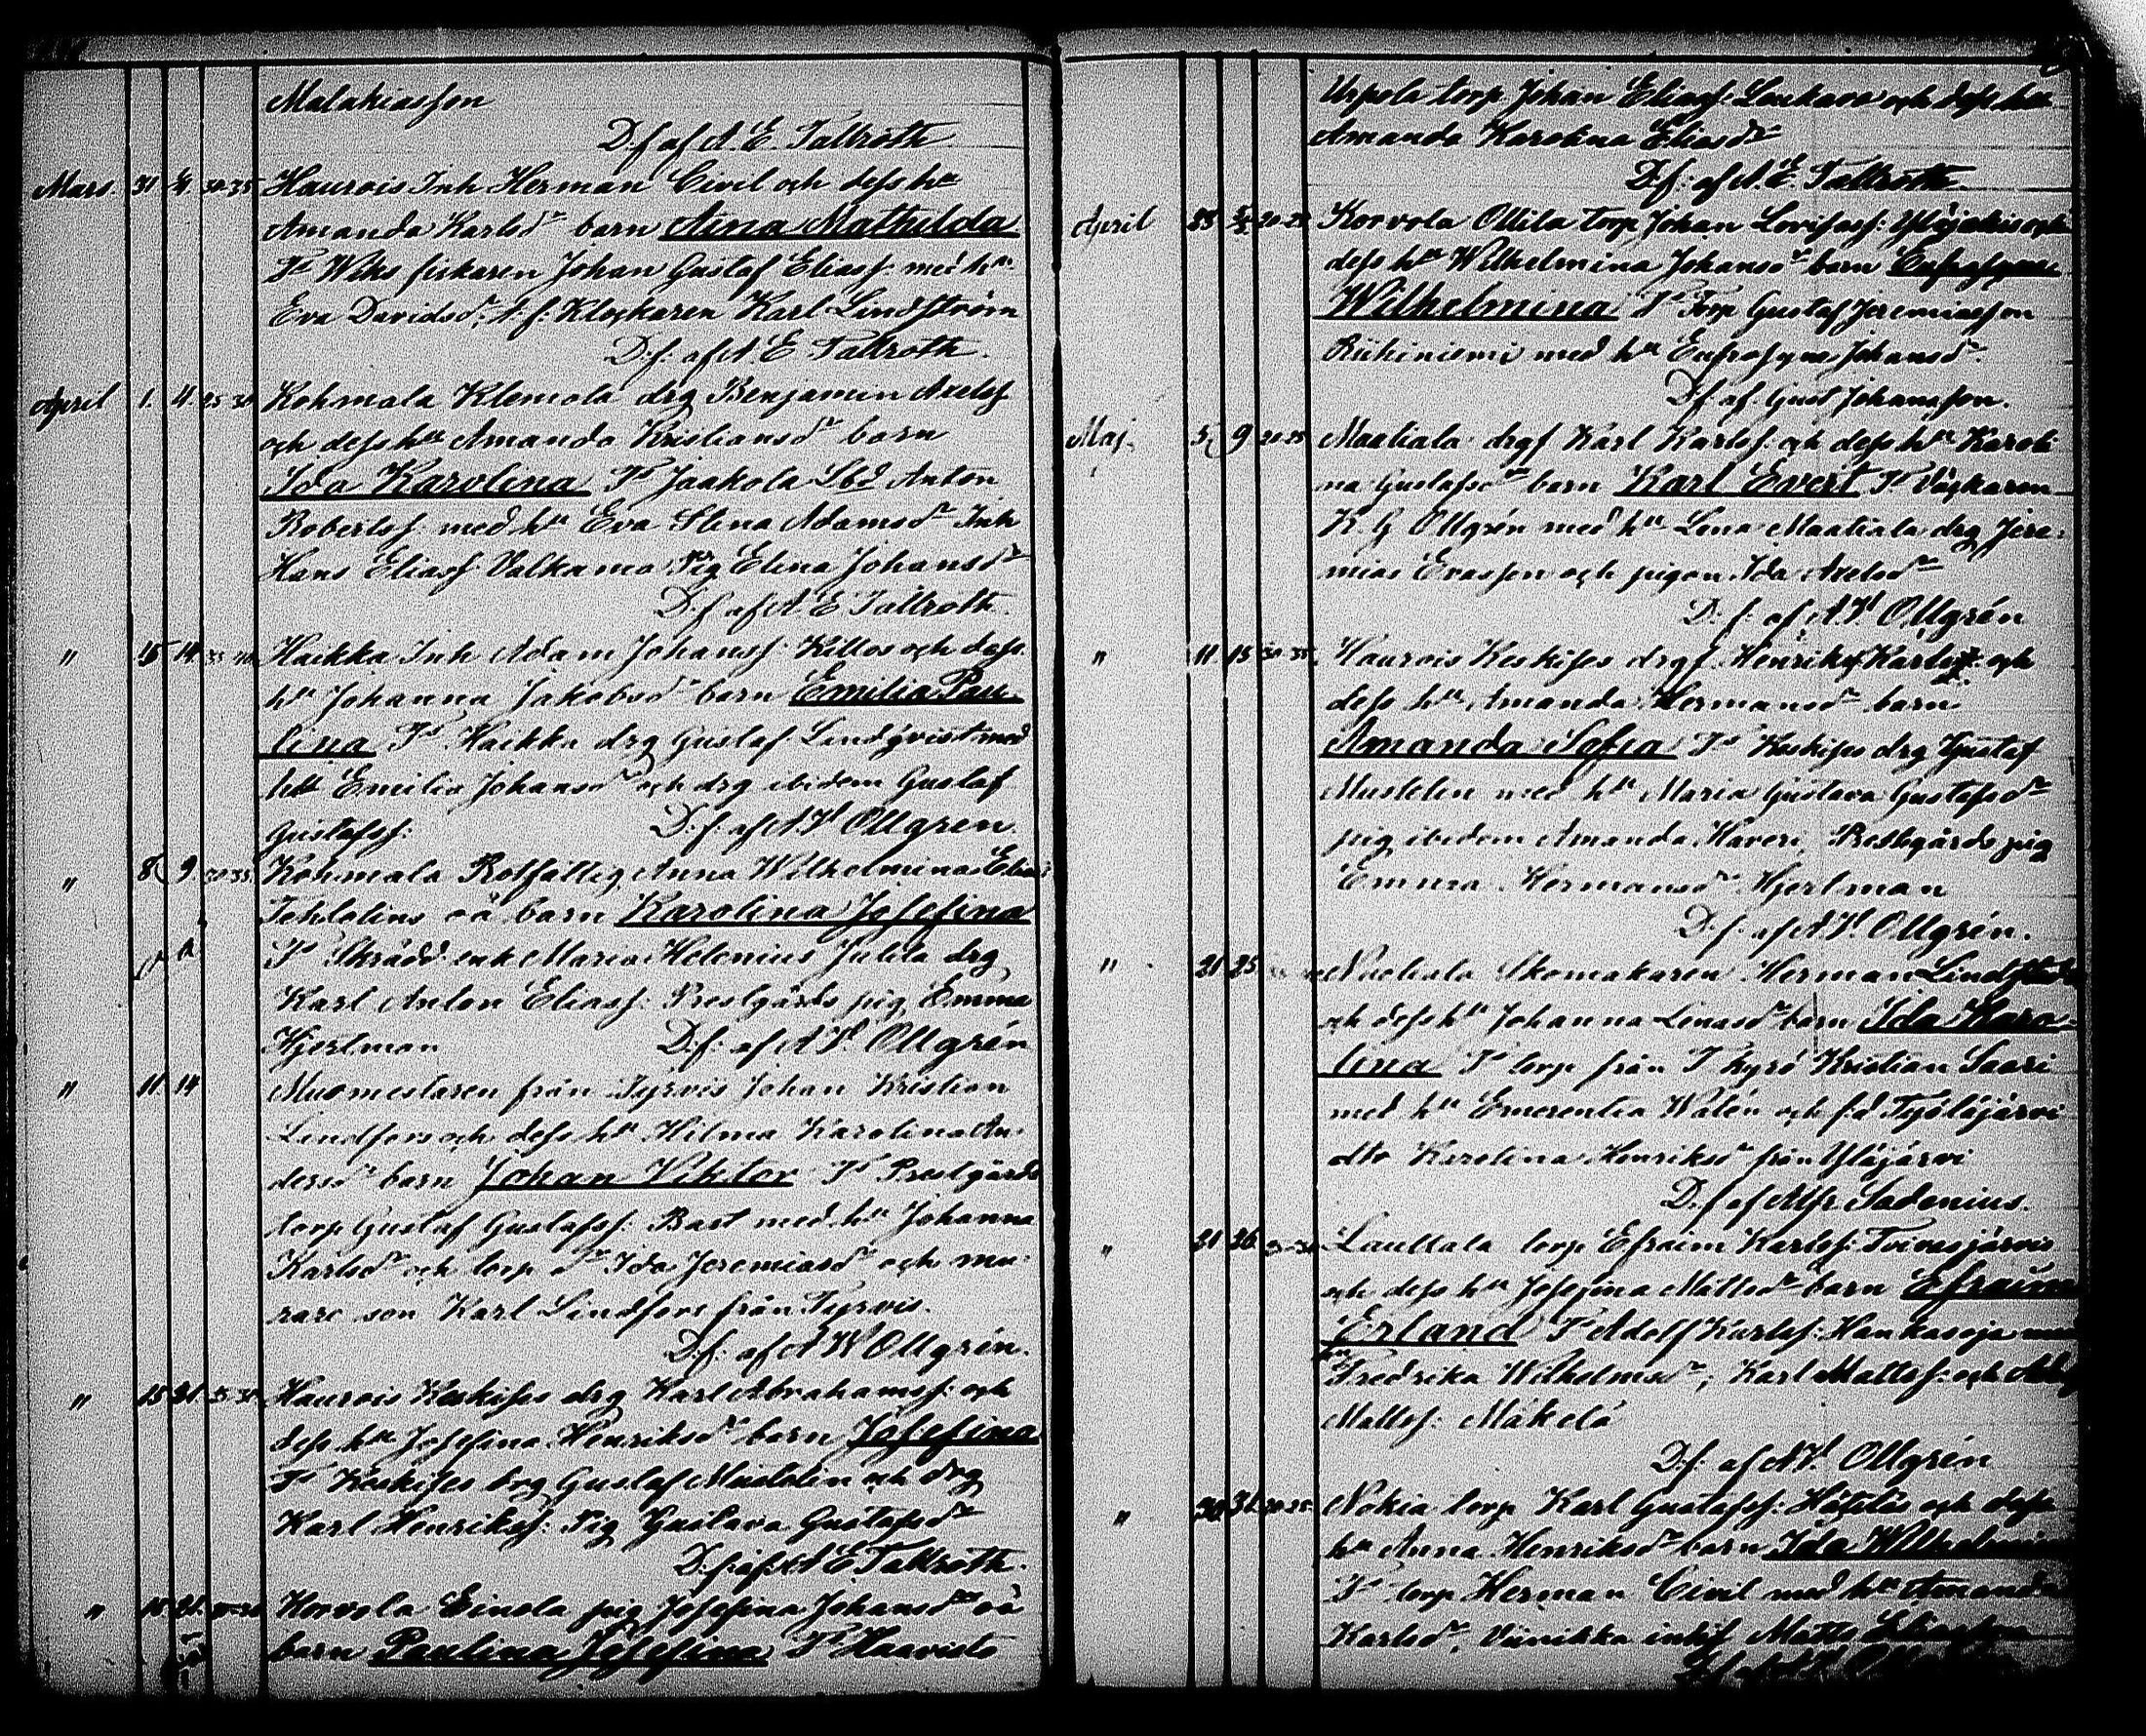 Malakiasson
D. f. af A. E. Tallroth
Mars. 31 4/4 30-35 Haurois Inh Herman Civil och dess hu
Amanda Karlsdr barn Aina Mathilda
Ts Wiks fiskaren Johan Gustaf Eliass: med hu
Eva Davidsdr, A. f. Klockaren Karl Lindström
D: f: af A. E. Tallroth.
April 1. 4. 25-30 Kohmala Klemola drg Benjamin Axelss
och dess hu Amanda Kristiansdr barn
Ida Karolina Ts Jaakola Sbd Anton
Robertss: med hu Eva Stina Adamsdr Inh
Hans Eliass: Valkama Pig Elina Johansdr
D. f af A. E Tallroth.
" 14. 35-40 Haikka Inh Adam Johanss: Killos och dess
hu Johanna Jakobsdr barn Emilia Pau
lina Ts Haikka drg Gustaf Lindqvist med
hu Emilia Johansdr och drg ibidem Gustaf
Gustafss: D: f: af A. W. Ollgren.
" 8 9 30-35 Kohmala Rotfattig Anna Wilhelmina
oä barn Karolina Josefina
Ts Skrädd enk Maria Helenius Julila drg
Karl Anton Eliass: Prestgårds pig Emma
Hjertman D: f: af A W. Ollgrén
" 11 14 från Tyrvis Johan Kristian
Lindfors och dess hu Hilma Karolina An-
dersdr barn Johan Viktor Ts Prestgårds
torp Gustaf Gustafss: Bast med hu Johanna
Karlsdr och torp dr Ida Jeremiasdr och mu-
rare son Karl Lindfors från Tyrvis.
D: f: af A W Ollgrén.
" 15 21. 25-30 Haurois Keskises drg Karl Abrahamss: och
dess hu Josefina Henriksdr barn Josefina
Ts Keskises drg Gustaf Mustelin och drg
Karl Henrikss: Pig Gustava Gustafsdr
D. f: af A E. Tallroth.
" 21. Korvola Einola pig Josefina Johansdr oä
barn Paulina Josefina Ts Haavisto
Urpola torp Johan Eliass: och dess hu
Amanda Karolina Eliasdr
D. f: af A. E. Tallroth.
April 20-25 Korvola Ollila torp Johan Lovisass: och
dess hu Wilhelmina Johansdr barn Eufrosyne
Wilhelmina Ts Torp Gustaf Jeremiasson
Riihiniemi med hu Eufrosyne Johansdr.
D. f af Gust Johansson.
Maj. 5 9 20-25 Maatiala drgf Karl Karlss: och dess hu Karoli
na Gustafsdr barn Karl Evert Ts Väckaren
K. G Ollgrén med hu Lena Maatiala drg Jere-
mias Evasson och pigan Ida Axelsdr
D. f: af A. W Ollgrén
" 11. 15 30-35. Haurois Keskises drgf. Henrik Karlss: och
dess hu Amanda Hermansdr barn
Amanda Sofia Ts Keskises drg Gustaf
Mustelin med hu Maria Gustava Gustafsdr
pig ibidem Amanda Haveri, Prestgårds pig
Emma Hermansdr Hjertman
D. f. af A W. Ollgrén.
" 21 25 Skomakaren Herman
och dess hu Johanna Lenasdr barn Ida Karo-
lina Ts torp från T kyrö Kristian Saari
med hu Emerentia Walén och
dtr Karolina Henriksdr från Ylöjärvi
D. f af Alfr Sadenius.
" 21 26 Lauttala torp Efraim Karlss:
och dess hu Josefina Mattsdr barn Efraim
Erland Ts Adolf Karlss: Hankaoja med
hu Fredrika Wilhelmsdr, Karl Mattss: och
Mattss: Mäkelä
D: f: af A W. Ollgrén
" 31. 30-35 Nokia torp Karl Gustafss: och dess
hu Anna Henriksdr barn Ida Wilhelmina
Ts torp Herman Civil med hu Amanda
Karlsdr, Viinikka Matts Eliasson
D. f af A W. Ollgrén